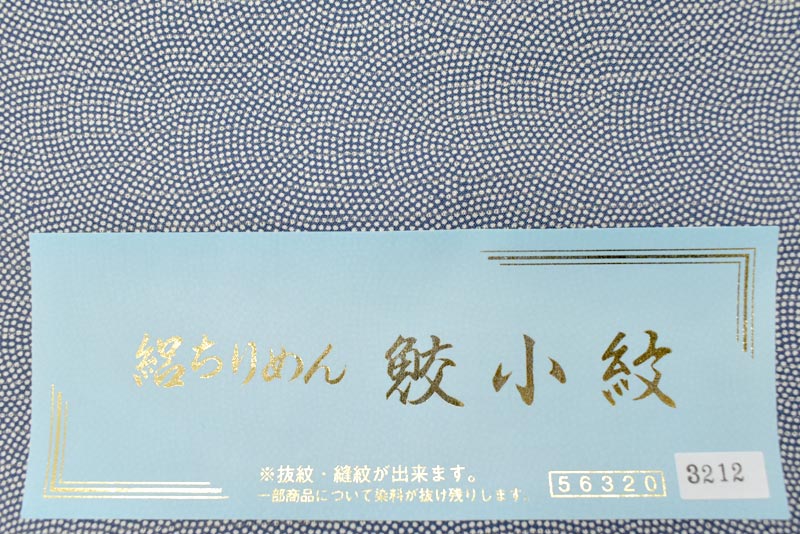 絽ちりめん 鮫小紋
※抜紋・縫紋が出来ます。
一部商品について染料が抜け残りします。
56320
3212